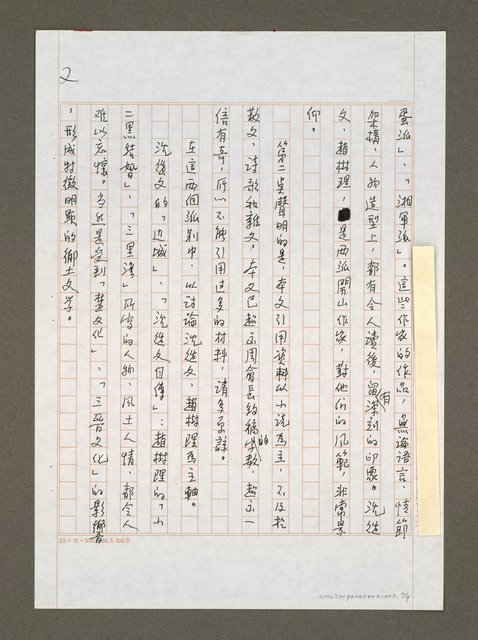 2
蛋派」、「湘軍派」。這些作家的作品，無論語言、情節
架構，人物造型上，都有令人讀後，留有深刻的印象。沈從
文、趙樹理，是兩派開山作家，對他們的風範非常景
仰。
第二要聲明的是，本文引用資料以小說為主，不及於
散文、詩歌和雜文。本文已超出周會長約稿的字數，超出一
倍有奇，所以不能引用过多的材料，請多原諒。
在這兩個派別中，以討論沈從文、趙樹理為主軸。
沈從文的「边城」、「沈從文自傳」；趙樹理的「小
二黑結婚」、「三里湾」所寫的人物、風土人情，都令人
难以忘懷。当然是受到「楚文化」、「三晉文化」的影響
，形成特徵明顯的鄉土文学。
25×10=300